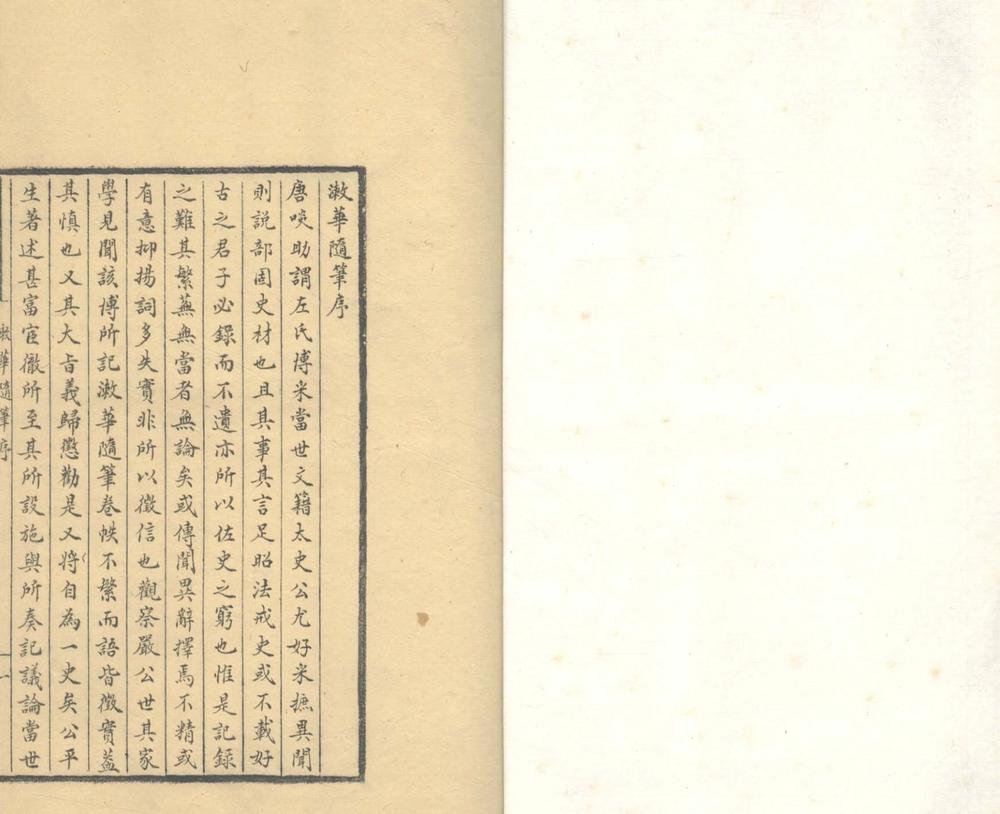 漱華隨筆序
唐啖助謂左氏博采當世文籍太史公尤好采摭異聞
則説部固史材也且其事其言足昭法戒史或不載好
古之君子必錄而不遺亦所以佐史之窮也惟是記録
之難其繁蕪無當者無論矣或傳聞異辭擇焉不精或
有意抑揚詞多失實非所以徵信也觀察嚴公世其家
學見聞該博所記漱華隨筆卷帙不繁而語皆徵實蓋
其慎也又其大旨義歸懲勸是又將自為一史矣公平
生著述甚富宦徹所至其所設施與所奏記議論當世
漱華隨筆序
一